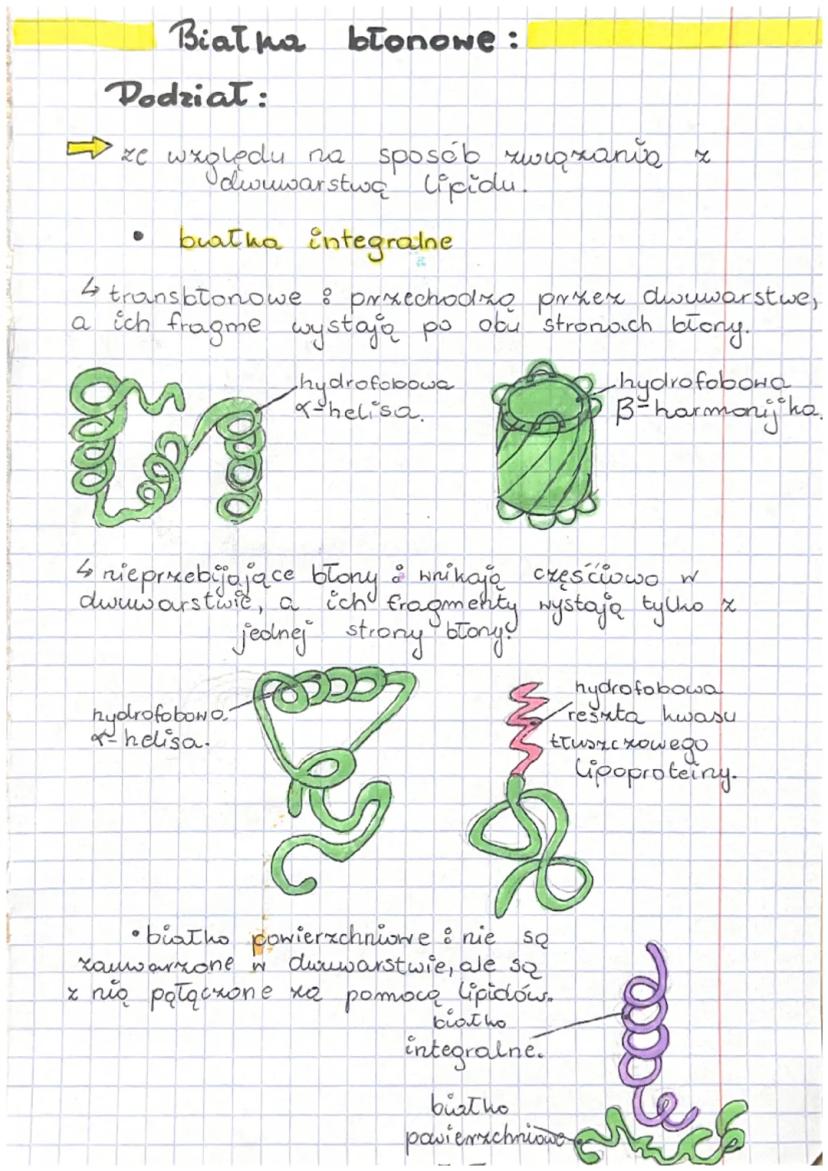 Białka błonowe:
Podział:
ze względu na sposób związania z
dwuwarstwą lipidu.
• białka integralne
↳ transbłonowe: przechodzą przez dwuwarstwę,
a ich fragme wystają po obu stronach błony.
hydrofobowa
α-helisa.
hydrofobowa
β-harmonijka.
↳ nieprzebijające błony: wnikają częściowo w
dwuwarstwie, a ich fragmenty wystają tylko z
jednej strony błony.
hydrofobowa
α-helisa.
hydrofobowa
reszta kwasu
tłuszczowego
lipoproteiny.
• białko powierzchniowe: nie są
zauwarzone w dwuwarstwie, ale są
z nią połączone za pomocą lipidów.
białko
integralne.
białko
powierzchniowe